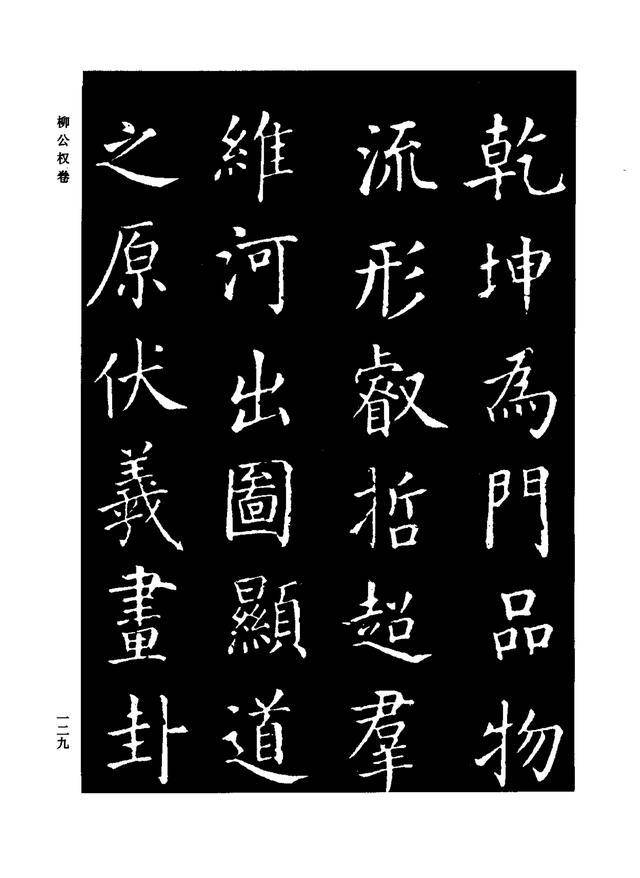 乾坤為門品物
流形叡哲超羣
維河出圖顯道
之原伏羲畫卦
柳公权卷
一二九